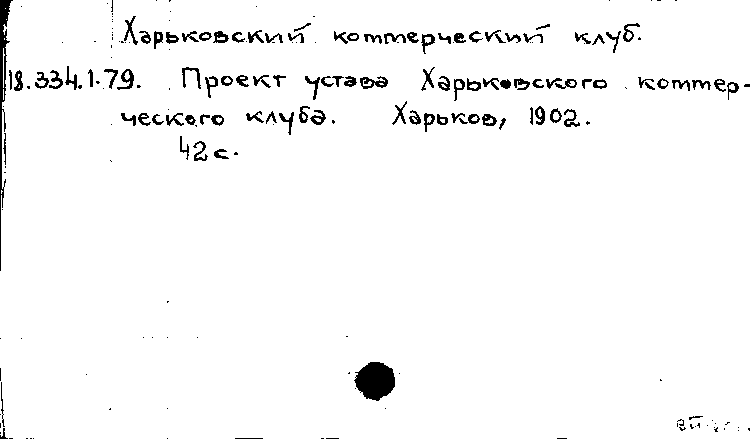 Харьковский коммерческий клуб.
18.334.1.79. Проект устава Харьковского коммер-
ческого клуба. Харьков, 1902.
42 с.